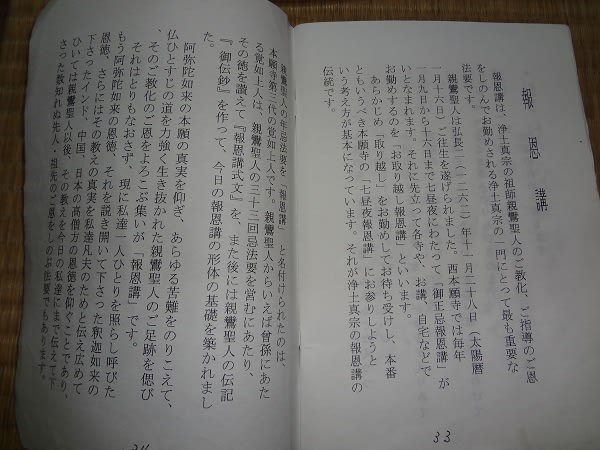 報恩講
報恩講は、浄土真宗の祖師親鸞聖人のご教化、ご指導のご恩
をしのんでお勤めされる浄土真宗の一門にとって最も重要な
法要です。
親鸞聖人は弘長二(一二六二)年十一月二十八日(太陽暦
一月十六日)ご往生を遂げられました。西本願寺では毎年
一月九日から十六日まで七昼夜にわたって「御正忌報恩講」が
いとなまれます。それに先立って各寺や、お講、自宅などで
お勤めするのを「お取り越し報恩講」といいます。
あらかじめ「取り越し」をお勤めしてお待ち受けし、本番
ともいうべき本願寺の「七昼夜報恩講」にお参りしようと
いう考え方が基本になっています。それが浄土真宗の報恩講の
伝統です。
33
親鸞聖人の年忌法要を「報恩講」と名付けられたのは、
本願寺第三代の覚如上人です。親鸞聖人からいえば曾孫にあた
る覚如上人は、親鸞聖人の三十三回忌法要を営むにあたり、
その徳を讃えて『報恩講式文』を、また後には親鸞聖人の伝記
『御伝鈔』を作って、今日の報恩講の形体の基礎を築かれまし
た。
阿弥陀如来の本願の真実を仰ぎ、あらゆる苦難をのりこえて、
仏ひとすじの道を力強く生き抜かれた親鸞聖人のご足跡を偲び
、そのご教化のご恩をよろこぶ集いが「報恩講」です。
それはとりもなおさず、現に私達一人ひとりを照らし呼びた
もう阿弥陀如来の恩徳、それを説き開いて下さった釈迦如来の
恩徳、さらにはその教えの真実を私達凡夫のためと伝え広めて
下さったインド、中国、日本の高僧方の恩徳を仰ぐことであり、
ひいては親鸞聖人以後、その教えを今日の私達にまで伝えて下
さった数知れぬ先人・祖先のご恩をしのぶ法要でもあります。
34